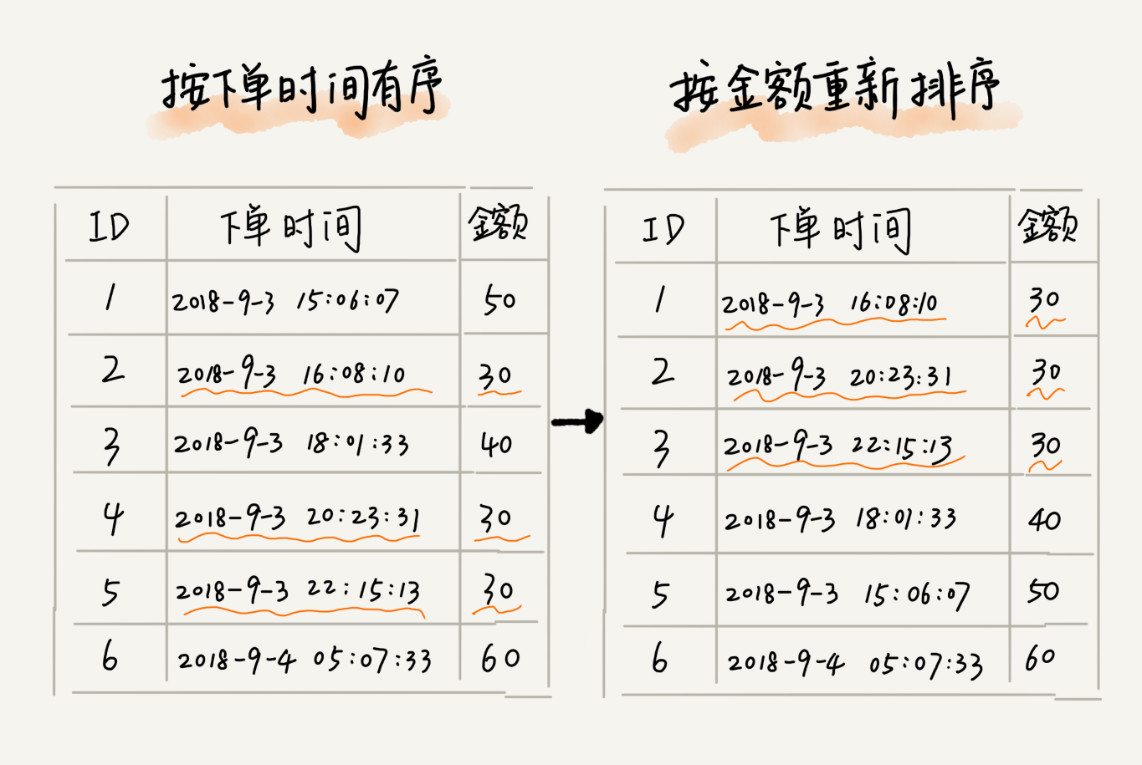 按下单时间有序
ID 下单时间 金额
1 2018-9-3 15:06:07 50
2 2018-9-3 16:08:10 30
3 2018-9-3 18:01:33 40
4 2018-9-3 20:23:31 30
5 2018-9-3 22:15:13 30
6 2018-9-4 05:07:33 60
按金额重新排序
ID 下单时间 金额
1 2018-9-3 16:08:10 30
2 2018-9-3 20:23:31 30
3 2018-9-3 22:15:13 30
4 2018-9-3 18:01:33 40
5 2018-9-3 15:06:07 50
6 2018-9-4 05:07:33 60